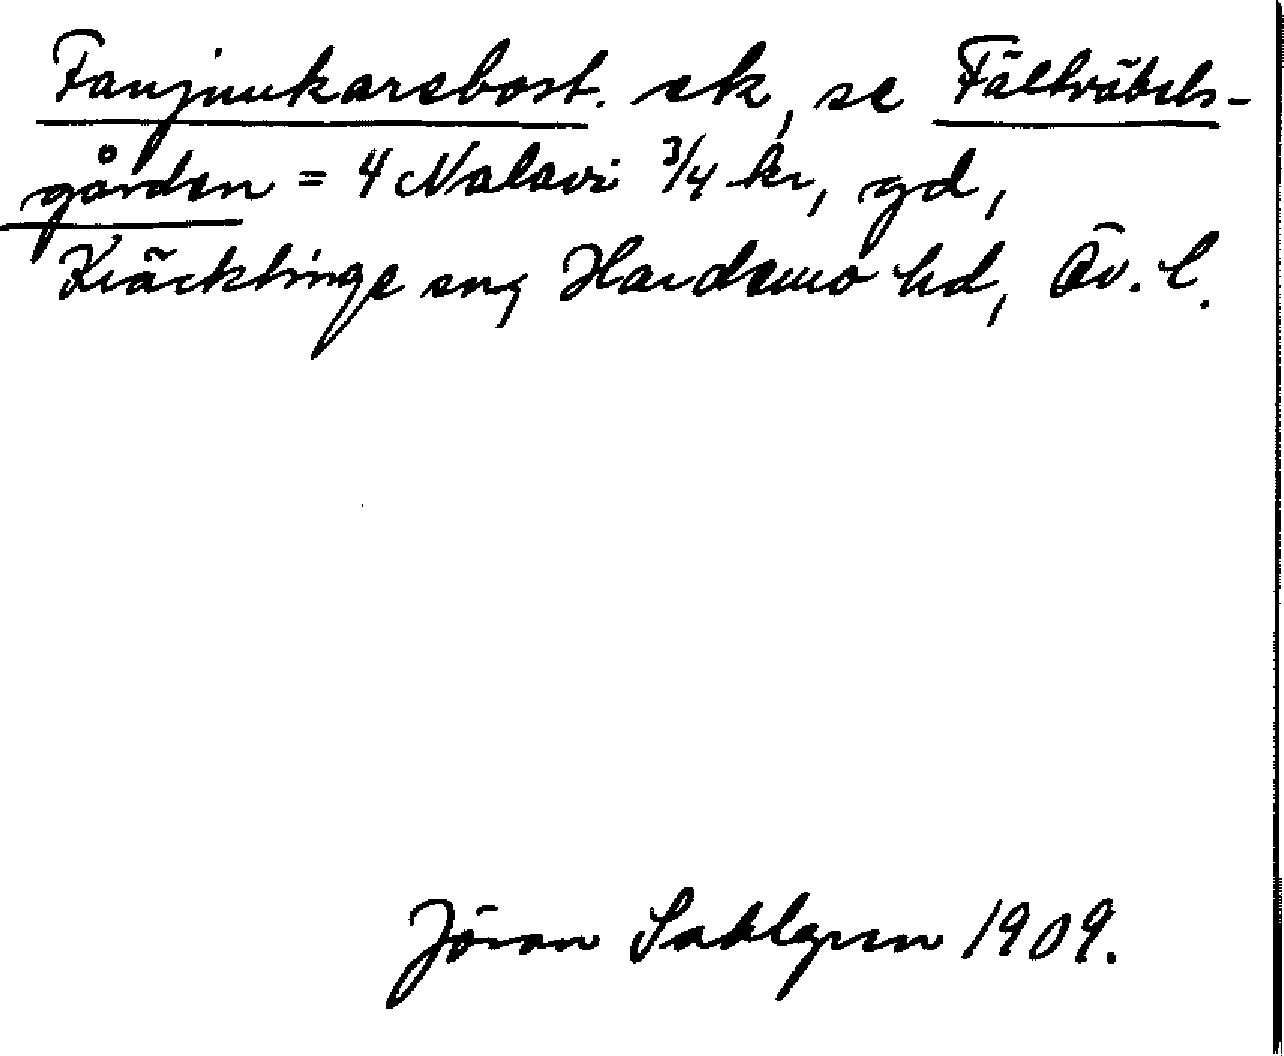 Fanjunkarebost. ek, se Fältväbels-
gården = 4 Nalavi 3/4 kr, gd,
Kräcklinge sn, Hardemo hd, Ör. l.
Jöran Sahlgren 1909.